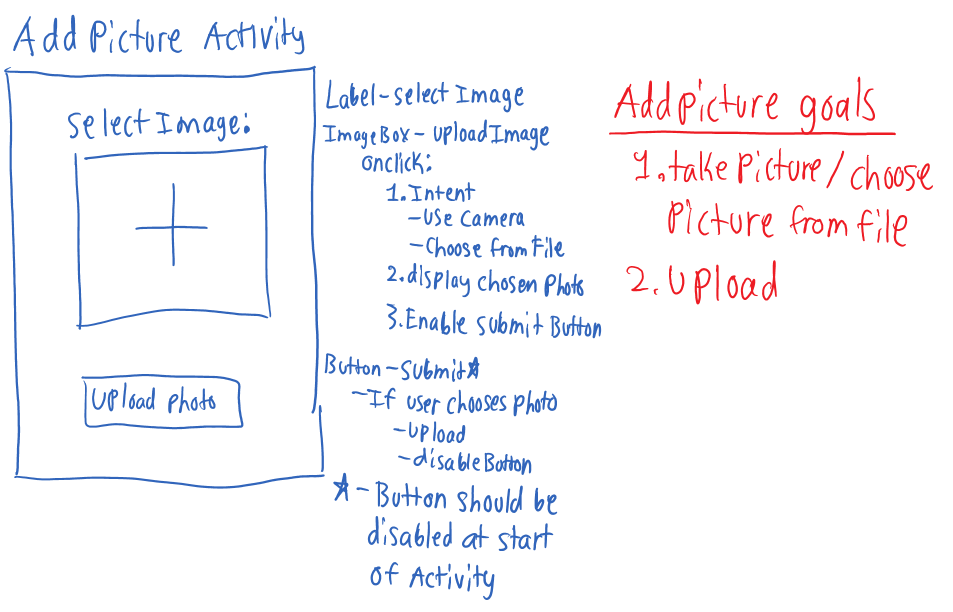 Add Picture Activity
Select Image:
Upload Photo
Label-select Image
ImageBox - UploadImage
onclick:
1. Intent
-Use Camera
-Choose from File
2. display chosen Photo
3. Enable submit Button
Button - Submit★
-If user chooses photo
-Upload
-disableButton
★ - Button should be
disabled at start
of Activity
Add picture goals
1. take Picture/choose
Picture from file
2. Upload